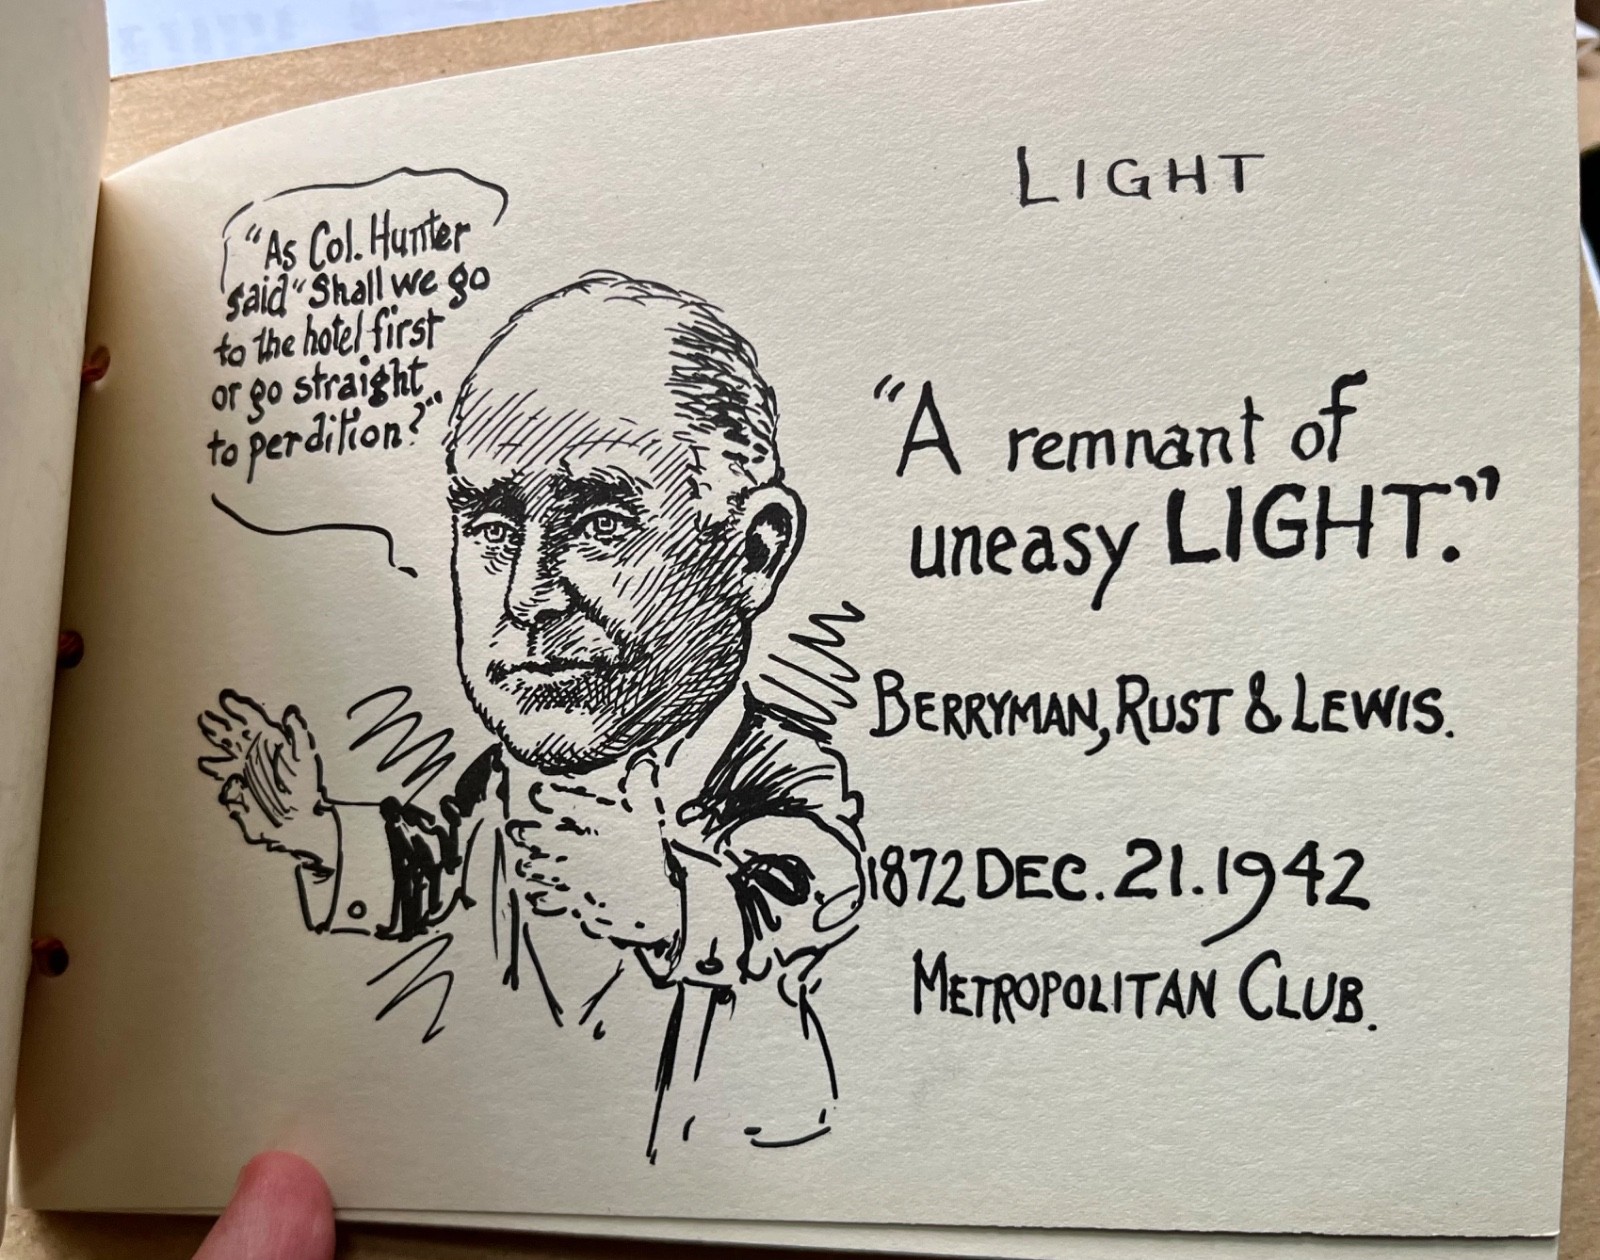 LIGHT
"As Col. Hunter
said "Shall we go
to the hotel first
or go straight
to perdition?""
"A remnant of
uneasy LIGHT."
BERRYMAN, RUST & LEWIS.
1872 DEC. 21. 1942
METROPOLITAN CLUB.